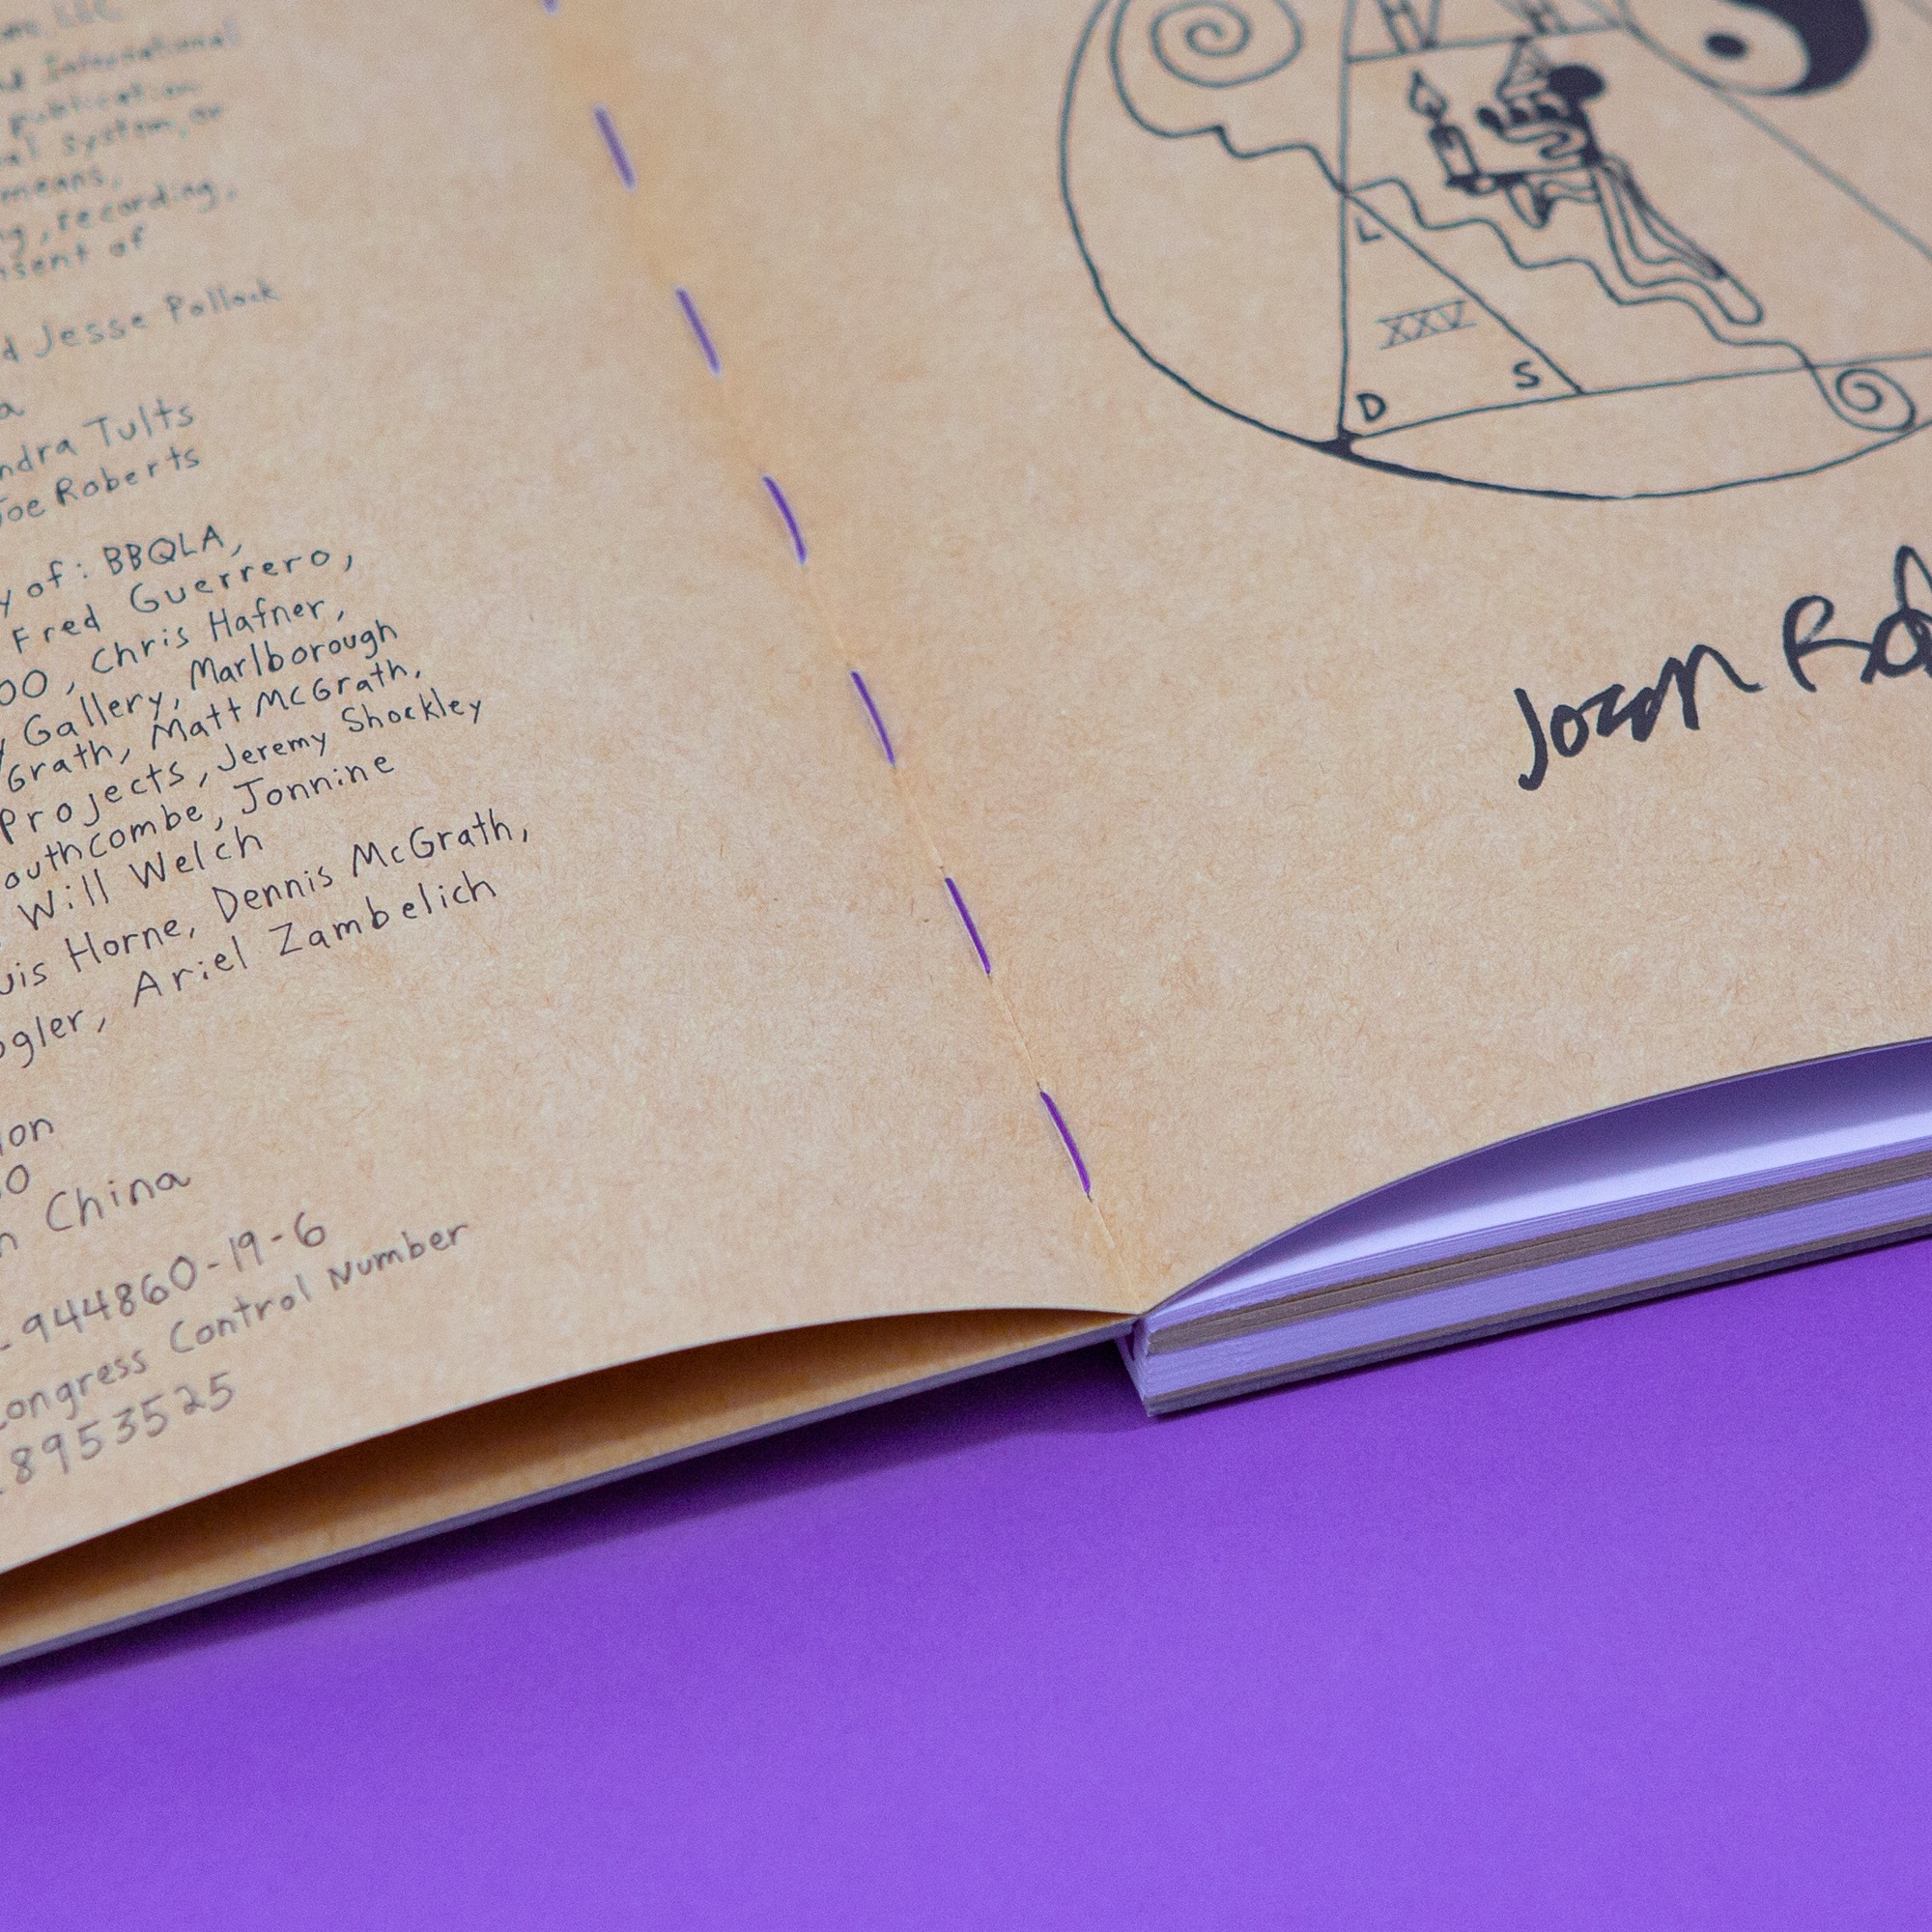 LLC
International
publication
system, or
means,
recording,
of
Jesse Pollock
a
Tults
Joe Roberts
y of: BBQLA,
Fred Guerrero,
OO, Chris Hafner,
Gallery, Marlborough
Grath, Matt McGrath,
Projects, Jeremy Shockley
outhcombe, Jonnine
Will Welch
uis Horne, Dennis McGrath,
ogler, Ariel Zambelich
ion
0
n China
944860-19-6
ongress Control Number
8953525
L
XXV
S
D